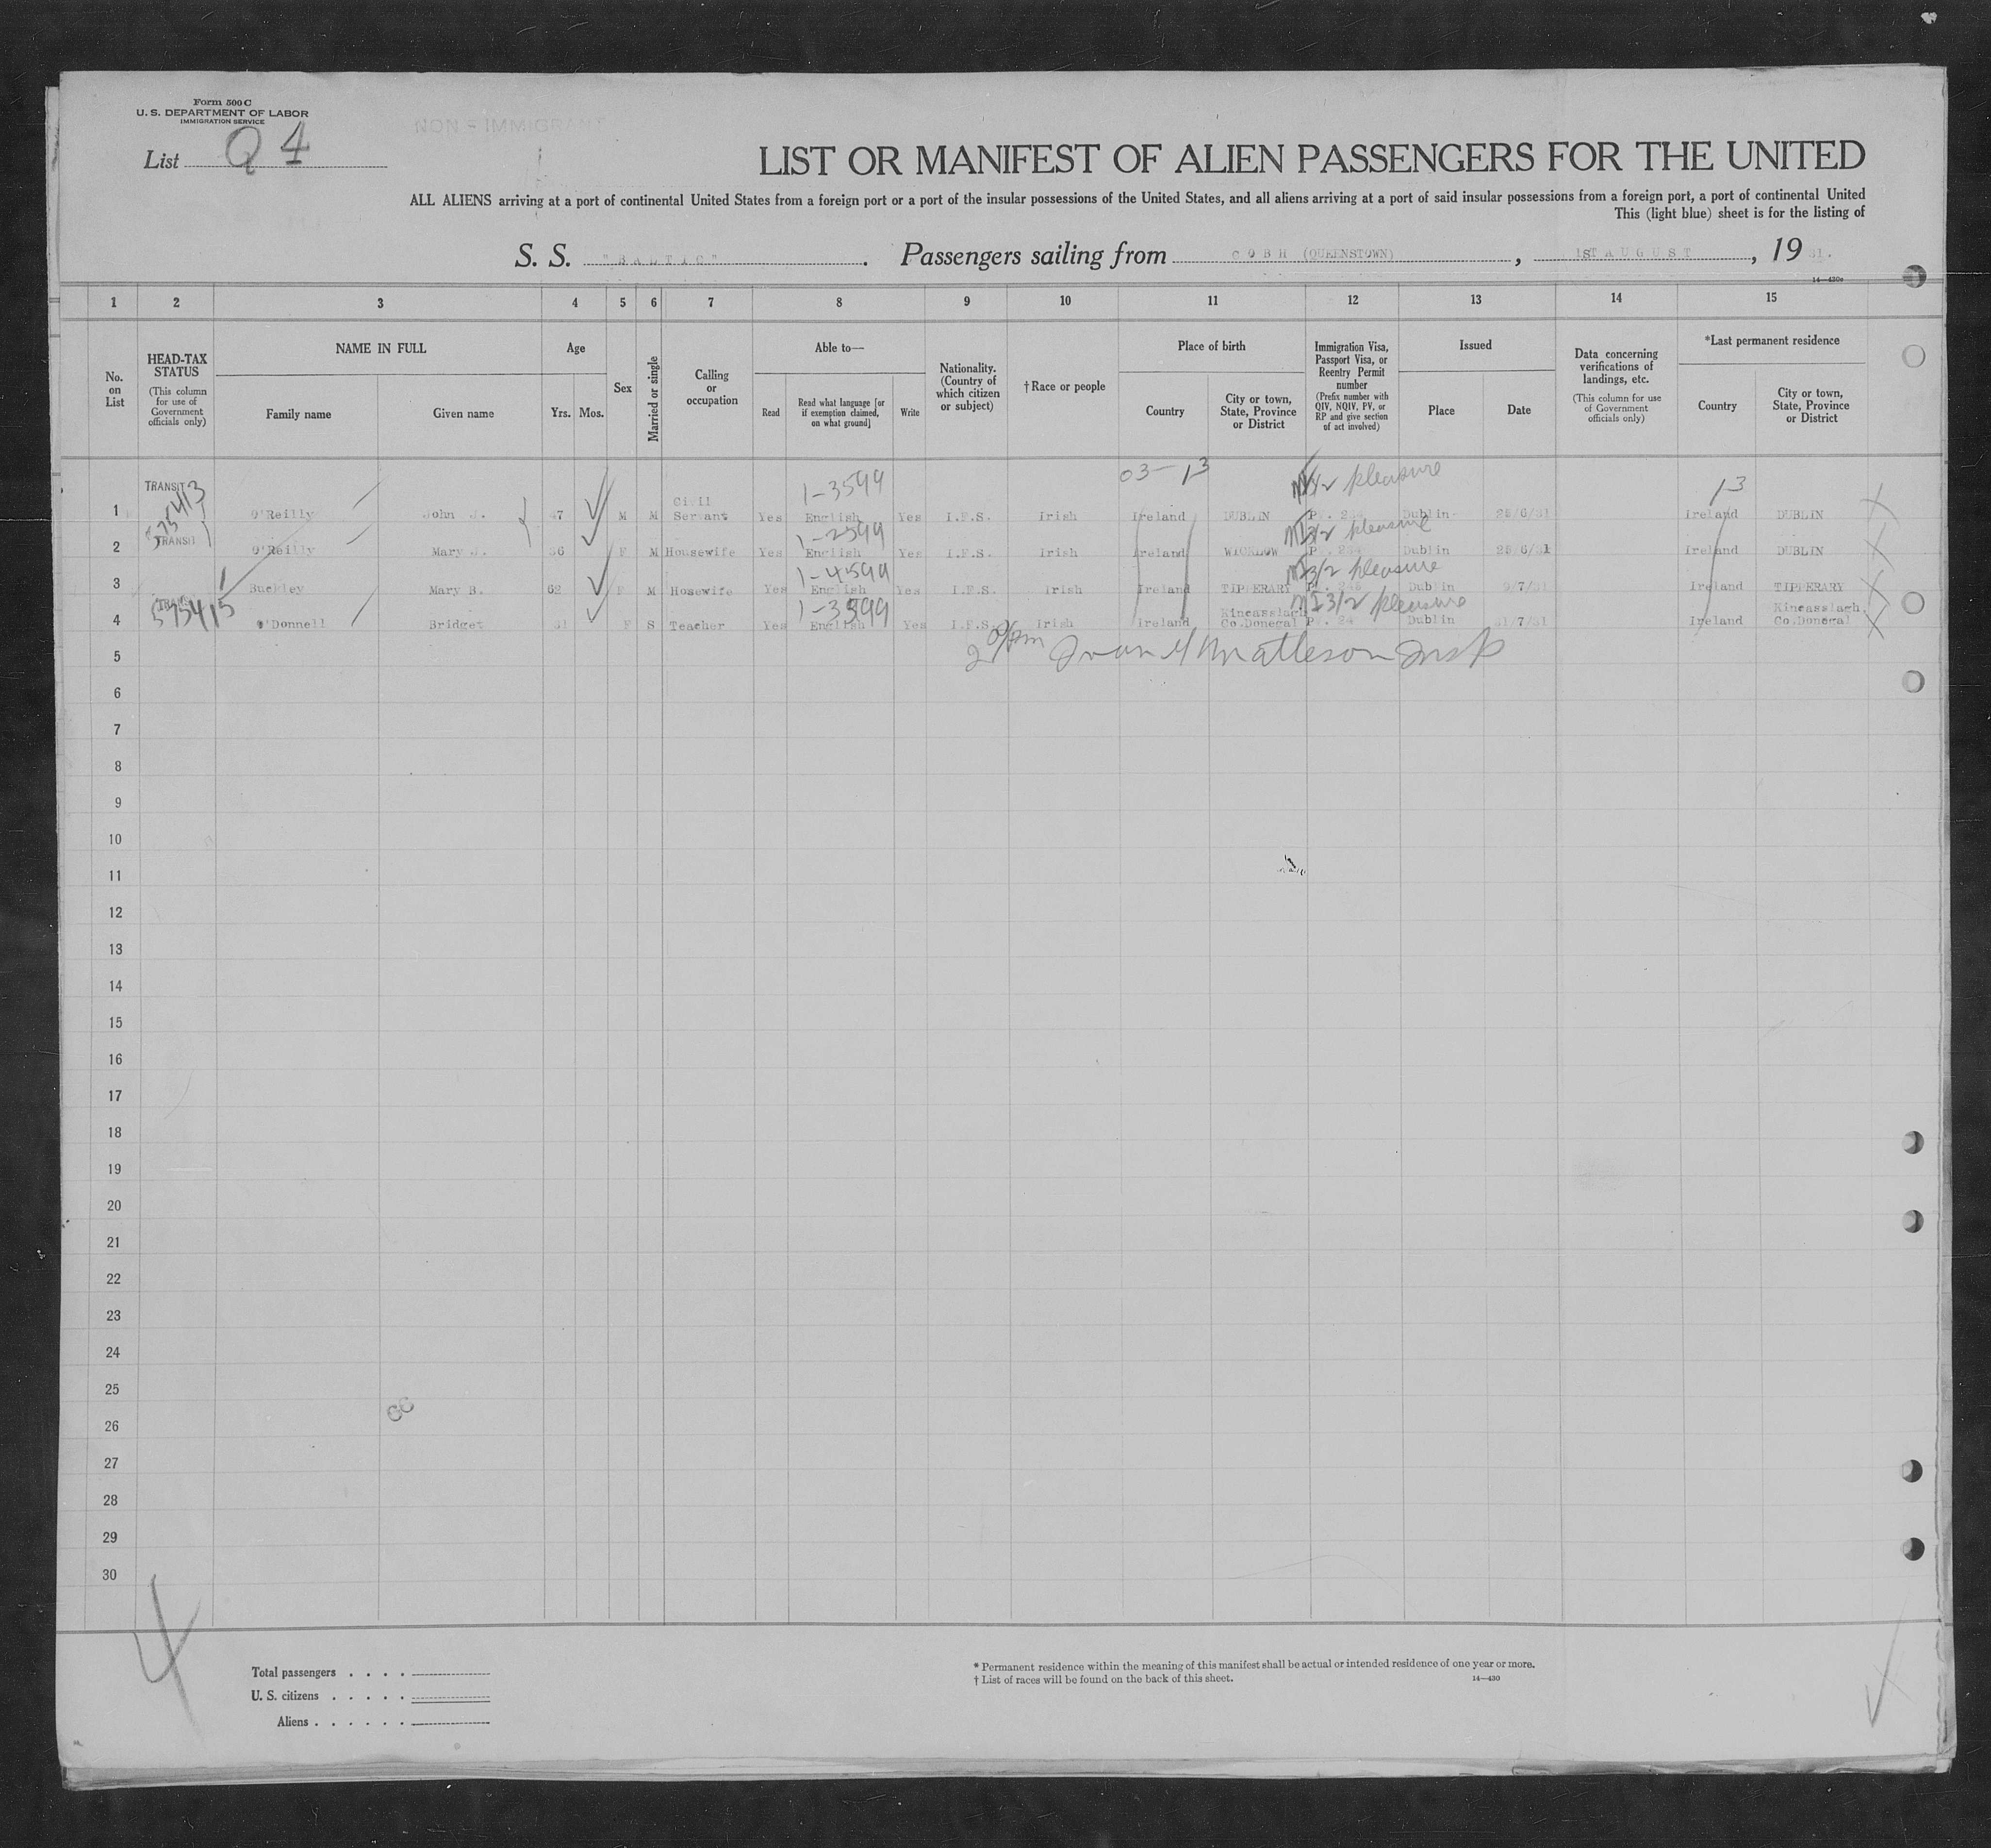 Form 500 C
U. S. DEPARTMENT OF LABOR
IMMIGRATION SERVICE
NON - IMMIGRANT
List Q 4
LIST OR MANIFEST OF ALIEN PASSENGERS FOR THE UNITED
ALL ALIENS arriving at a port of continental United States from a foreign port or a port of the insular possessions of the United States, and all aliens arriving at a port of said insular possessions from a foreign port, a port of continental United
This (light blue) sheet is for the listing of
S. S. "BALTIC". Passengers sailing from COBH (QUEENSTOWN), 1ST AUGUST, 1931.
14—430a
1 2 3 4 5 6 7 8 9 10 11 12 13 14 15
No. on List
HEAD-TAX STATUS
(This column for use of Government officials only)
NAME IN FULL
Family name
Given name
Age
Yrs.
Mos.
Sex
Married or single
Calling or occupation
Able to—
Read
Read what language [or if exemption claimed, on what ground]
Write
Nationality. (Country of which citizen or subject)
†Race or people
Place of birth
Country
City or town, State, Province or District
Immigration Visa, Passport Visa, or Reentry Permit number
(Prefix number with QIV, NQIV, PV, or RP and give section of act involved)
Issued
Place
Date
Data concerning verifications of landings, etc.
(This column for use of Government officials only)
*Last permanent residence
Country
City or town, State, Province or District
03-13
13
TRANSIT 1-3599 3/2 pleasure
1 O'Reilly John J. 47 M M Civil Servant Yes English Yes I.F.S. Irish Ireland DUBLIN Dublin 25/6/31 Ireland DUBLIN
TRANSIT 1-2599 3/2 pleasure
2 O'Reilly Mary J. 36 F M Housewife Yes English Yes I.F.S. Irish Ireland WICKLOW Dublin 25/6/31 Ireland DUBLIN
1-4599 3/2 pleasure
3 Buckley Mary B. 62 F M Hosewife Yes English Yes I.F.S. Irish Ireland TIPPERARY Dublin 9/7/31 Ireland TIPPERARY
575415 1-3599 3/2 pleasure
4 O'Donnell Bridget 31 F S Teacher Yes English Yes I.F.S. Irish Ireland Kincasslagh Co.Donegal Dublin Ireland Kincasslagh. Co.Donegal
5 Matteson Insp
6
7
8
9
10
11
12
13
14
15
16
17
18
19
20
21
22
23
24
25
26
27
28
29
30
4
Total passengers . . . .
U. S. citizens . . . . .
Aliens . . . . . .
* Permanent residence within the meaning of this manifest shall be actual or intended residence of one year or more.
† List of races will be found on the back of this sheet. 14—430